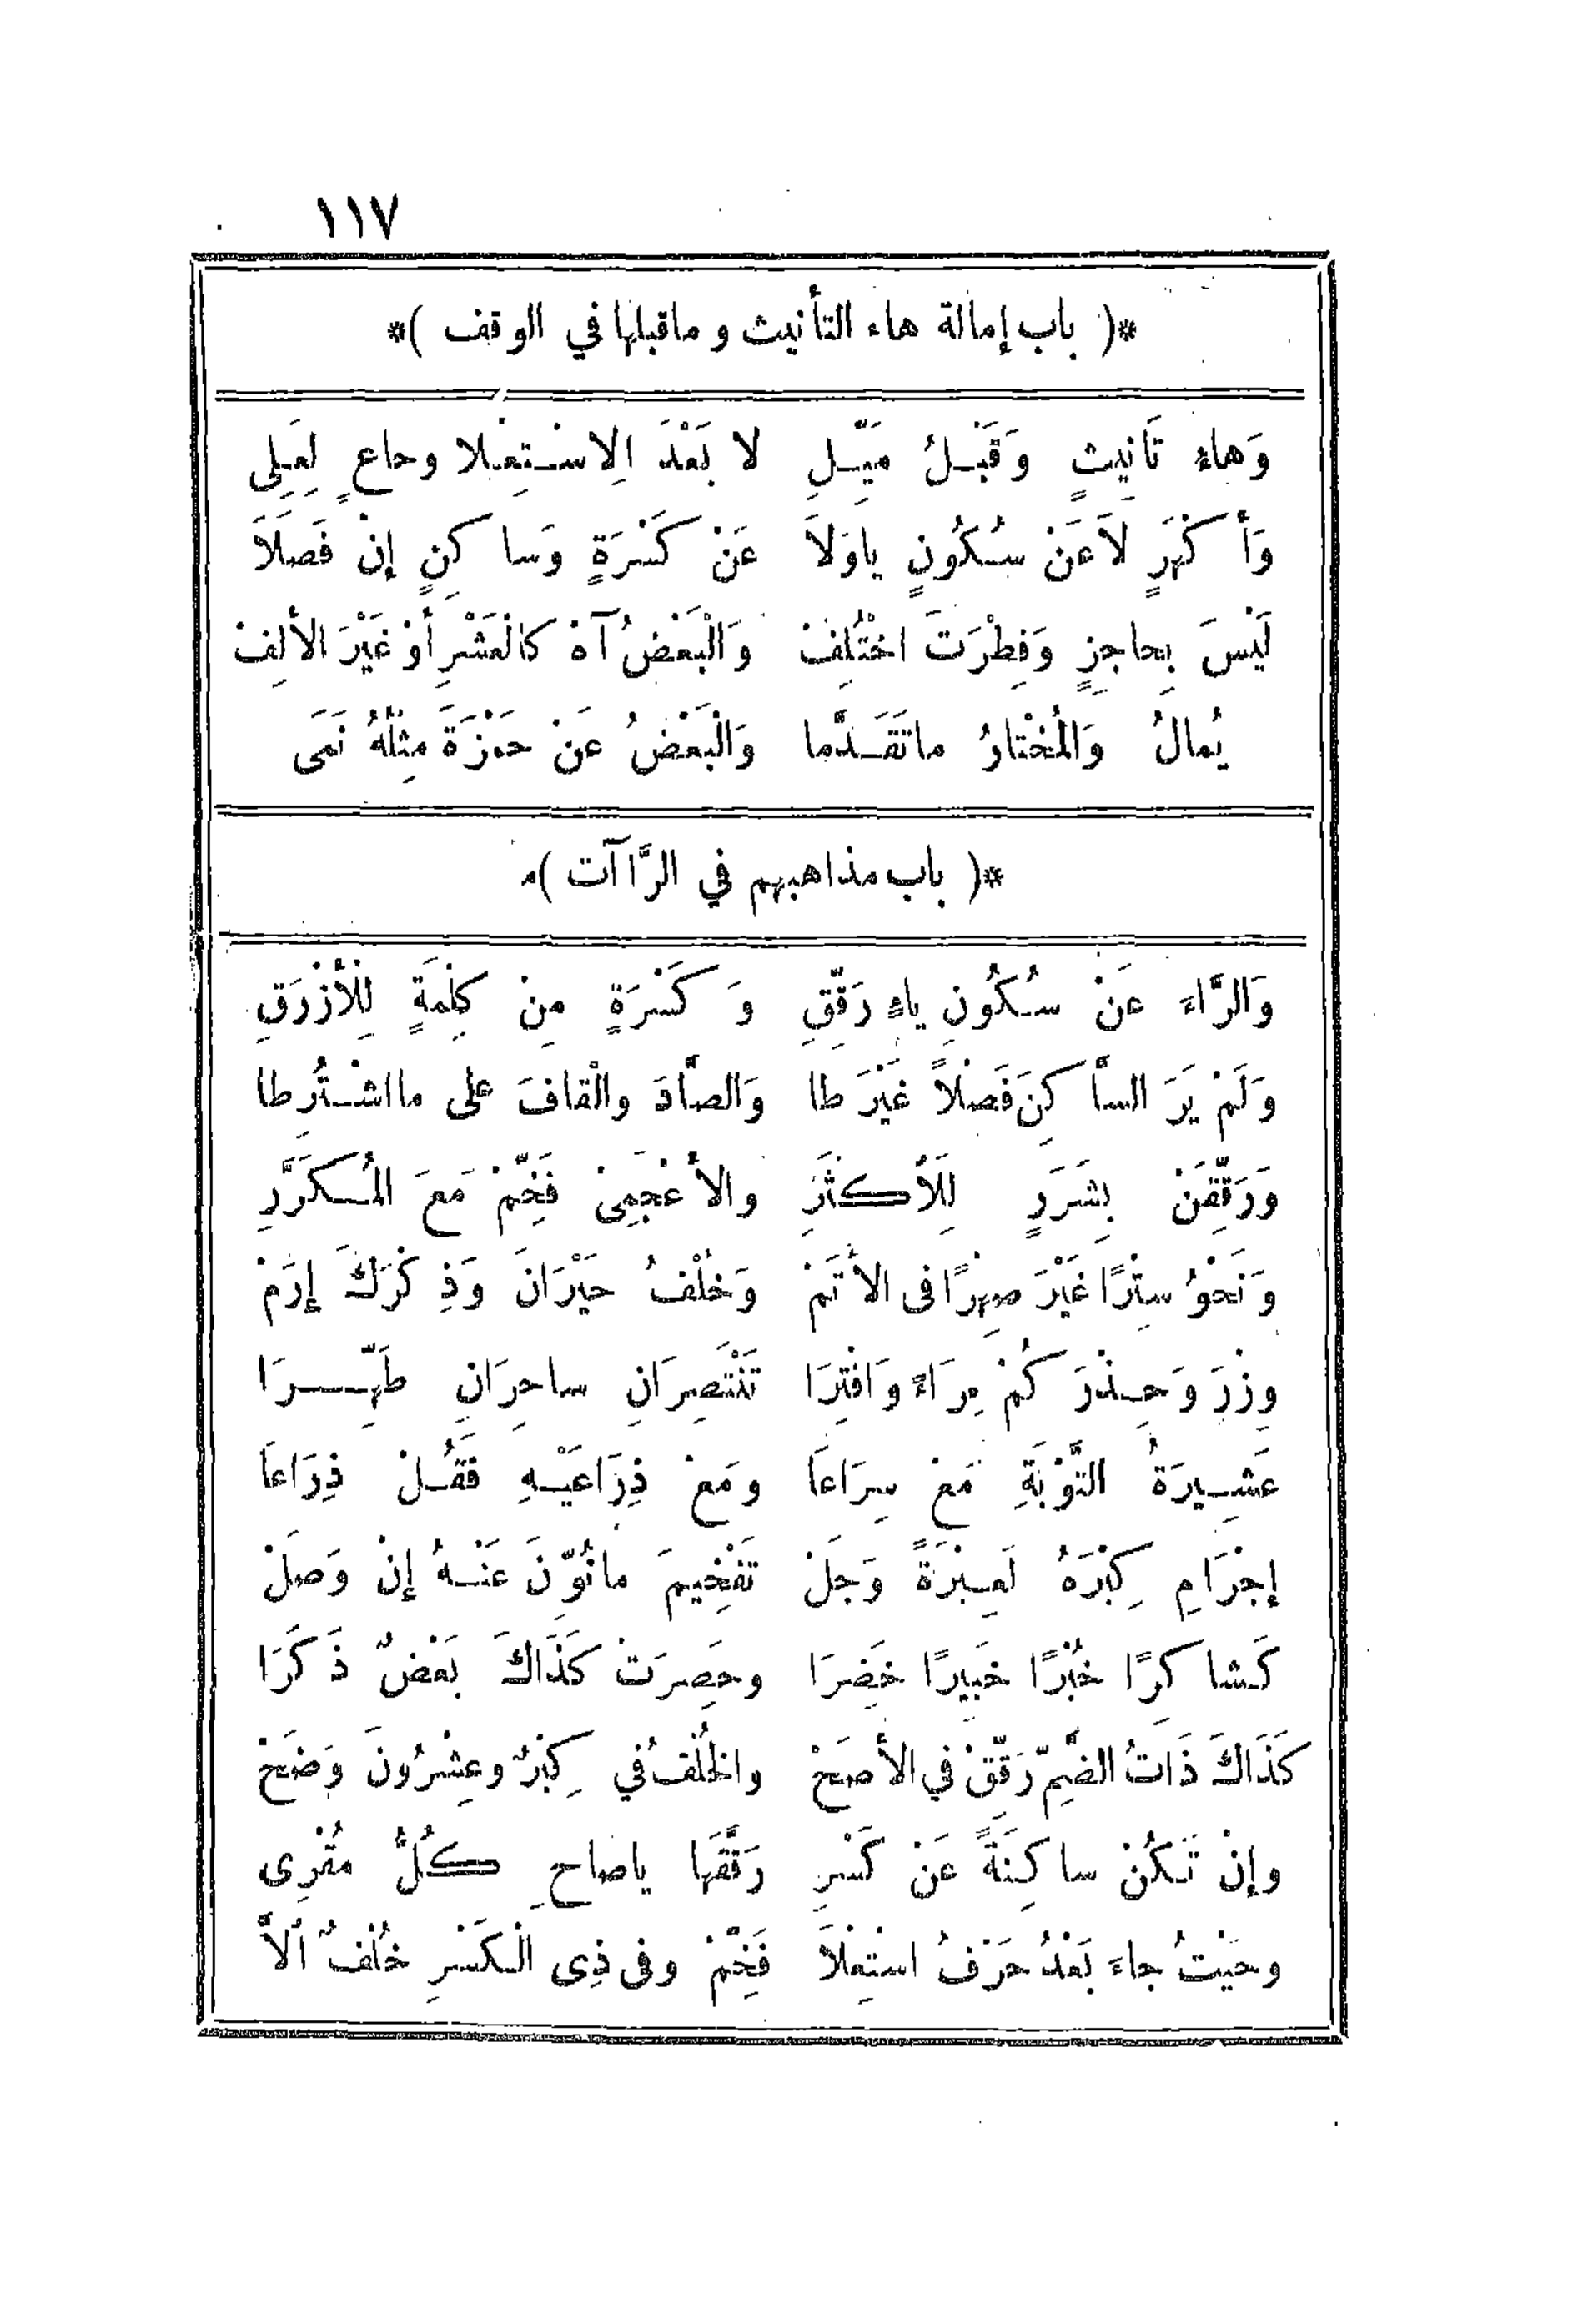 ١١٧
*( باب إمالة هاء التأنيث وماقبلها في الوقف )*
وَهاءِ تَأنِيثٍ وَقَبْلُ مَيِّلِ لا بَعْدَ اِلاسْتِعْلا وحاعٍ لِعَلِى
وَأَكْهَرٍ لاَعَنْ سُكُونٍ ياوَلاَ عَنْ كَسْرَةٍ وَساكِنٍ إنْ فَصَلاَ
لَيْسَ بِحاجِزٍ وَفِطْرَتَ اخْتُلِفْ وَالْبَعْضُ آهْ كالْعَشْرِ أَوْ غَيْرَ الألِفْ
يُمالُ وَالْمُخْتارُ ماتَقَدَّما وَالْبَعْضُ عَنْ حَمْزَةَ مِثْلُهُ نَمَى
*( باب مذاهبهم في الرَّاآت )*
وَالرَّاءَ عَنْ سُكُونِ ياءٍ رَقِّقِ وَكَسْرَةٍ مِنْ كِلْمَةٍ لِلْأَزْرَقِ
وَلَمْ يَرَ السَّاكِنَ فَصْلاً غَيْرَ طا وَالصَّادَ والْقافَ على مااشْتُرِطا
وَرَقِّقَنْ بِشَرَرٍ لِلَأكْثَرِ والأَعْجَمِىْ فَخِّمْ مَعَ الْمُكَرَّرِ
وَنَحْوُ سِتْرًا غَيْرَ صِهْرًا فى الأَتَمْ وَخُلْفُ حَيْرَانَ وَذِكْرَكَ إرَمْ
وِزْرَ وَحِذْرَكُمْ مِرَاءً وَافْتِرَا تَنْتَصِرَانِ ساحِرَانِ طَهِّرَا
عَشِيرَةُ التَّوْبَةِ مَعْ سِرَاعَا ومَعْ ذِرَاعَيْهِ فَقُلْ ذِرَاعَا
إجْرَامِ كِبْرَهُ لَعِبْرَةً وَجَلْ تَفْخِيمَ مانُوِّنَ عَنْهُ إنْ وَصَلْ
كَشاكِرًا خُبْرًا خَبِيرًا خَضِرَا وحَصِرَتْ كَذَاكَ بَعْضٌ ذَكَرَا
كَذَاكَ ذَاتُ الضَّمِّ رَقِّقْ في الأَصَحْ والخُلْفُ في كِبْرٌ وعِشْرُونَ وَضَحْ
وإنْ تَكُنْ ساكِنَةً عَنْ كَسْرِ رَقَّقَهَا ياصاحِ كُلُّ مُقْرِى
وحَيْثُ جاءَ بَعْدُ حَرْفُ اسْتِعْلاَ فَخِّمْ وفى ذِى الْكَسْرِ خُلْفٌ أَلاَّ